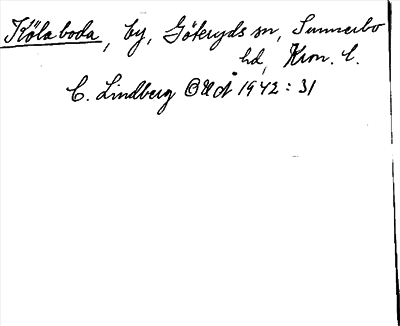 Kölaboda, by, Göteryds sn, Sunnerbo
hd, Kron. l.
C. Lindberg OUÅ 1942:31